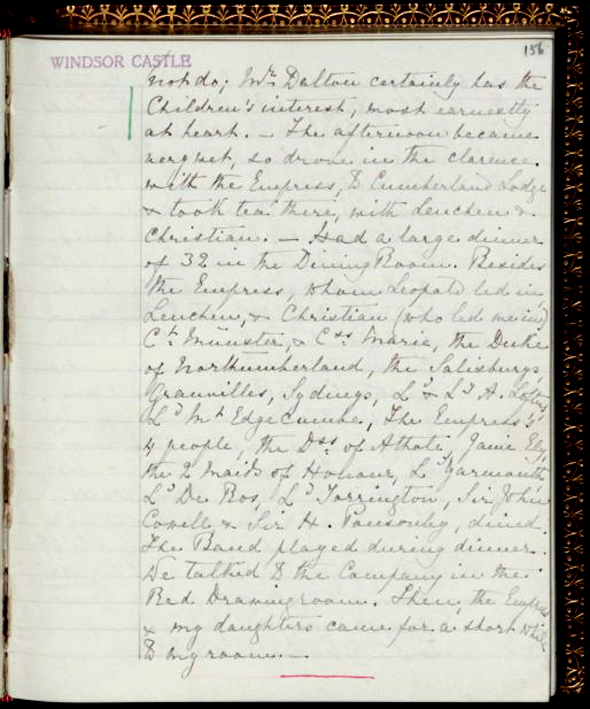 156
WINDSOR CASTLE
not do; Mr. Dalton certainly has the
Children's interest, most earnestly
at heart. — The afternoon became
very wet, so drove in the clarence
with the Empress, to Cumberland Lodge
& took tea there, with Lenchen &
Christian. — Had a large dinner
of 32 in the Dining Room. Besides
the Empress, whom Leopold led in,
Lenchen, & Christian (who led me in)
Ct. Münster, & Css. Marie, the Duke
of Northumberland, the Salisburys,
Granvilles, Sydneys, Ld. & Ly. A. Loftus,
Ld. Mt. Edgecumbe, The Empress's
4 people, the Dss. of Athole, Janie Ely,
the 2 Maids of Honour, Ld. Yarmouth,
Ld. De Ros, Ld. Torrington, Sir John
Cowell & Sir H. Ponsonby, dined.
The Band played during dinner.
We talked to the Company in the
Red Drawingroom. Then, the Empress
& my daughters came for a short while
to my room. —